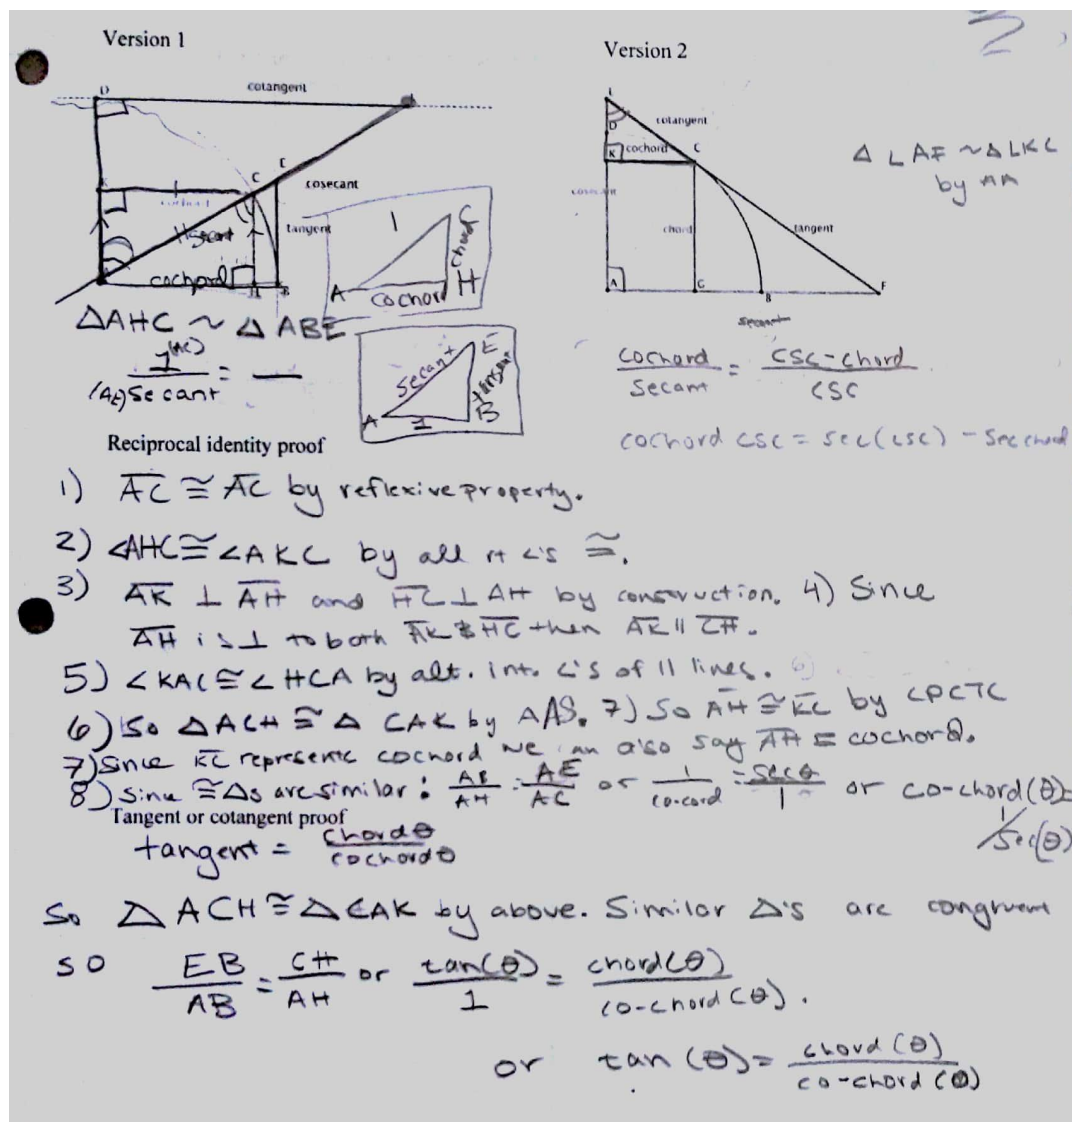 Version 1
Version 2
D
cotangent
K
C
E
cosecant
cochord
Hsecant
tangent
cochord
A
H
B
1
C
chord
A
cochord
H
L
D
cotangent
K
cochord
C
cosecant
chord
tangent
A
G
B
F
secant
Δ LAF ~ Δ LKC
by AA
ΔAHC ~ Δ ABE
1 (AC)
(AE) Secant
= —
Secant
E
tangent
A
1
B
cochord / Secant = csc-chord / csc
cochord csc = sec(csc) - sec chord
Reciprocal identity proof
1) AC ≅ AC by reflexive property.
2) <AHC ≅ <AKC by all rt <'s ≅.
3) AK ⊥ AH and HC ⊥ AH by construction. 4) Since
AH is ⊥ to both AK & HC then AK || CH.
5) < KAC ≅ < HCA by alt. int. <'s of || lines. 6)
6) So Δ ACH ≅ Δ CAK by AAS. 7) So AH ≅ KC by CPCTC
7) Since KC represents cochord we can also say AH = cochord.
8) Since ≅ Δs are similar: AB / AH = AE / AC or 1 / co-cord = secθ / 1 or co-chord(θ) =
1/sec(θ)
Tangent or cotangent proof
tangent = chord θ / cochord θ
So Δ ACH ≅ Δ CAK by above. Similar Δ's are congruent
so EB / AB = CH / AH or tan(θ) / 1 = chord(θ) / co-chord(θ).
or tan(θ) = chord(θ) / co-chord(θ)